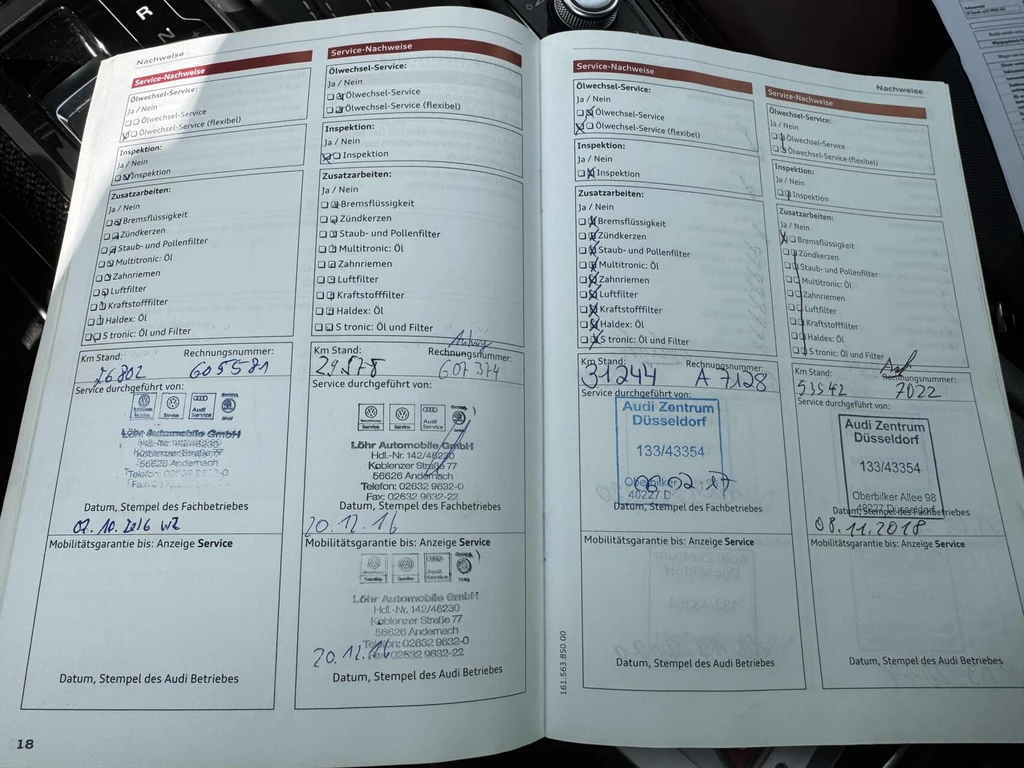 Nachweise
Service-Nachweise
Ölwechsel-Service:
Ja / Nein
Ölwechsel-Service
Ölwechsel-Service (flexibel)
Inspektion:
Ja / Nein
Inspektion
Zusatzarbeiten:
Ja / Nein
Bremsflüssigkeit
Zündkerzen
Staub- und Pollenfilter
Multitronic: Öl
Zahnriemen
Luftfilter
Kraftstofffilter
Haldex: Öl
S tronic: Öl und Filter
Km Stand: Rechnungsnummer:
26802 605581
Service durchgeführt von:
Löhr Automobile GmbH
Hdl.-Nr. 142/46230
Koblenzer Straße 77
56626 Andernach
Telefon: 02632 9632-0
Datum, Stempel des Fachbetriebes
07.10.2016 WZ
Mobilitätsgarantie bis: Anzeige Service
Datum, Stempel des Audi Betriebes
18
Service-Nachweise
Ölwechsel-Service:
Ja / Nein
Ölwechsel-Service
Ölwechsel-Service (flexibel)
Inspektion:
Ja / Nein
Inspektion
Zusatzarbeiten:
Ja / Nein
Bremsflüssigkeit
Zündkerzen
Staub- und Pollenfilter
Multitronic: Öl
Zahnriemen
Luftfilter
Kraftstofffilter
Haldex: Öl
S tronic: Öl und Filter
Km Stand: Rechnungsnummer:
607374
Service durchgeführt von:
Audi
Service
Löhr Automobile GmbH
Hdl.-Nr. 142/46230
Koblenzer Straße 77
56626 Andernach
Telefon: 02632 9632-0
Fax: 02632 9632-22
Datum, Stempel des Fachbetriebes
20.12.16
Mobilitätsgarantie bis: Anzeige Service
Löhr Automobile GmbH
Hdl.-Nr. 142/46230
Koblenzer Straße 77
56626 Andernach
Telefon: 02632 9632-0
Fax: 02632 9632-22
20.12.16
Datum, Stempel des Audi Betriebes
Service-Nachweise
Ölwechsel-Service:
Ja / Nein
Ölwechsel-Service
Ölwechsel-Service (flexibel)
Inspektion:
Ja / Nein
Inspektion
Zusatzarbeiten:
Ja / Nein
Bremsflüssigkeit
Zündkerzen
Staub- und Pollenfilter
Multitronic: Öl
Zahnriemen
Luftfilter
Kraftstofffilter
Haldex: Öl
S tronic: Öl und Filter
Km Stand: Rechnungsnummer:
31244 A 7128
Service durchgeführt von:
Audi Zentrum
Düsseldorf
133/43354
Oberbilker
40227 D
Datum, Stempel des Fachbetriebes
Mobilitätsgarantie bis: Anzeige Service
Datum, Stempel des Audi Betriebes
161.563.850.00
Nachweise
Service-Nachweise
Ölwechsel-Service:
Ja / Nein
Ölwechsel-Service
Ölwechsel-Service (flexibel)
Inspektion:
Ja / Nein
Inspektion
Zusatzarbeiten:
Ja / Nein
Bremsflüssigkeit
Zündkerzen
Staub- und Pollenfilter
Multitronic: Öl
Zahnriemen
Luftfilter
Kraftstofffilter
Haldex: Öl
S tronic: Öl und Filter
Km Stand: Rechnungsnummer:
53542 7022
Service durchgeführt von:
Audi Zentrum
Düsseldorf
133/43354
Oberbilker Allee 98
40227 Düsseldorf
Datum, Stempel des Fachbetriebes
08.11.2018
Mobilitätsgarantie bis: Anzeige Service
Datum, Stempel des Audi Betriebes
R
N